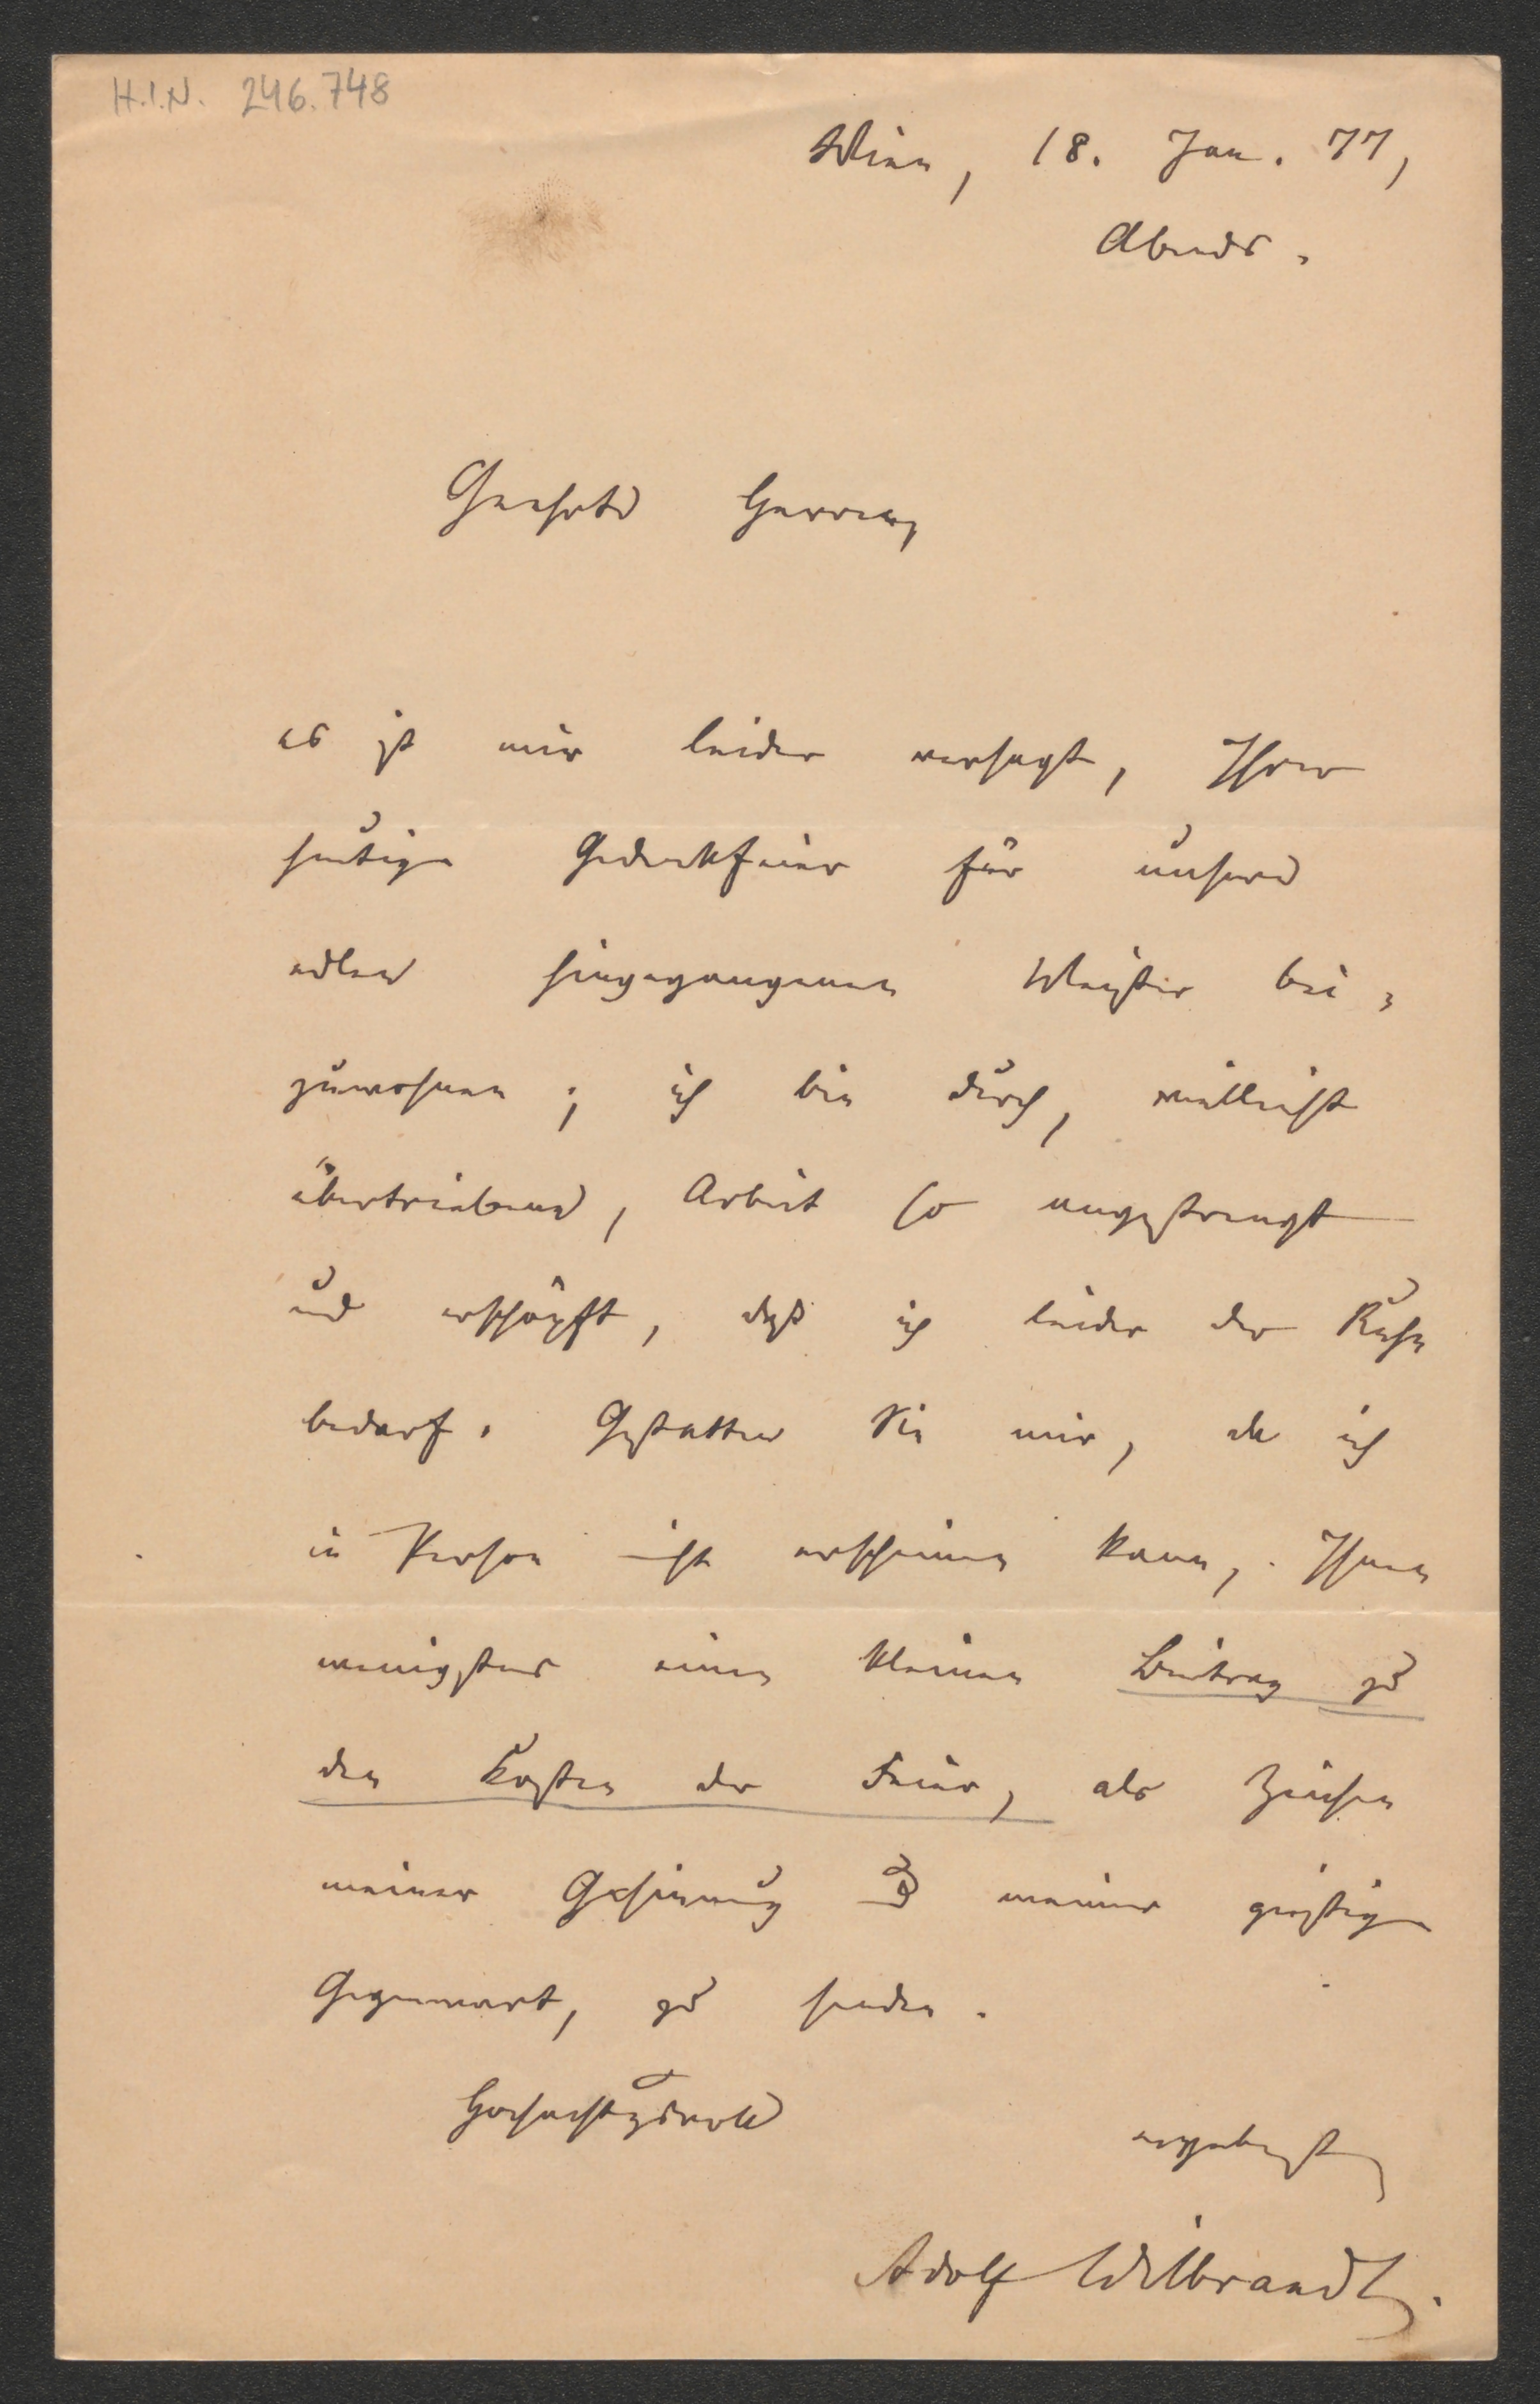 H.I.N. 246.748
Wien, 18. Jan. 77,
Abends.
Geehrte Herren,
es ist mir leider versagt, Ihrer
heutigen Gedenkfeier für unsern
edlen hingegangenen Meister bei-
zuwohnen; ich bin durch, vielleicht
übertriebene, Arbeit so angestrengt
und erschöpft, daß ich leider der Ruhe
bedarf. Gestatten Sie mir, da ich
in Person nicht erscheinen kann, Ihnen
wenigstens einen kleinen Beitrag zu
den Kosten der Feier, als Zeichen
meiner Gesinnung u meiner geistigen
Gegenwart, zu senden.
Hochachtungsvoll
ergebenst
Adolf Wilbrandt.